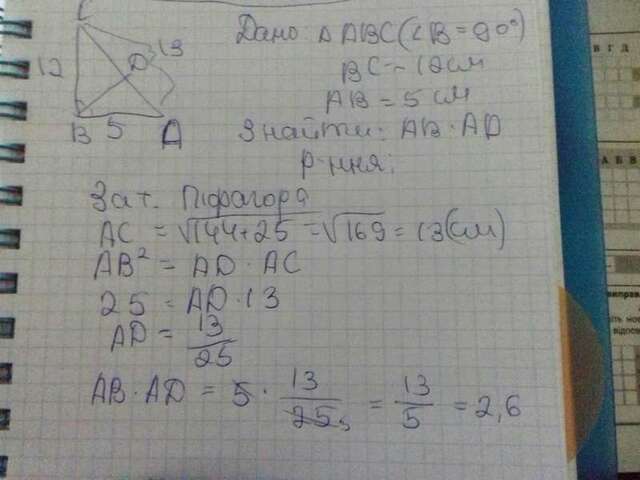 C
12
D
13
B 5 A
Дано: Δ ABC (∠B = 90°)
BC - 12 см
AB = 5 см
Знайти: AB · AD
Р-ння:
За т. Піфагора
AC = √144+25 = √169 = 13 (см)
AB² = AD · AC
25 = AD · 13
AD = 13/25
AB · AD = 5 · 13/25 5 = 13/5 = 2,6
В Г Д
А Б В
виправ